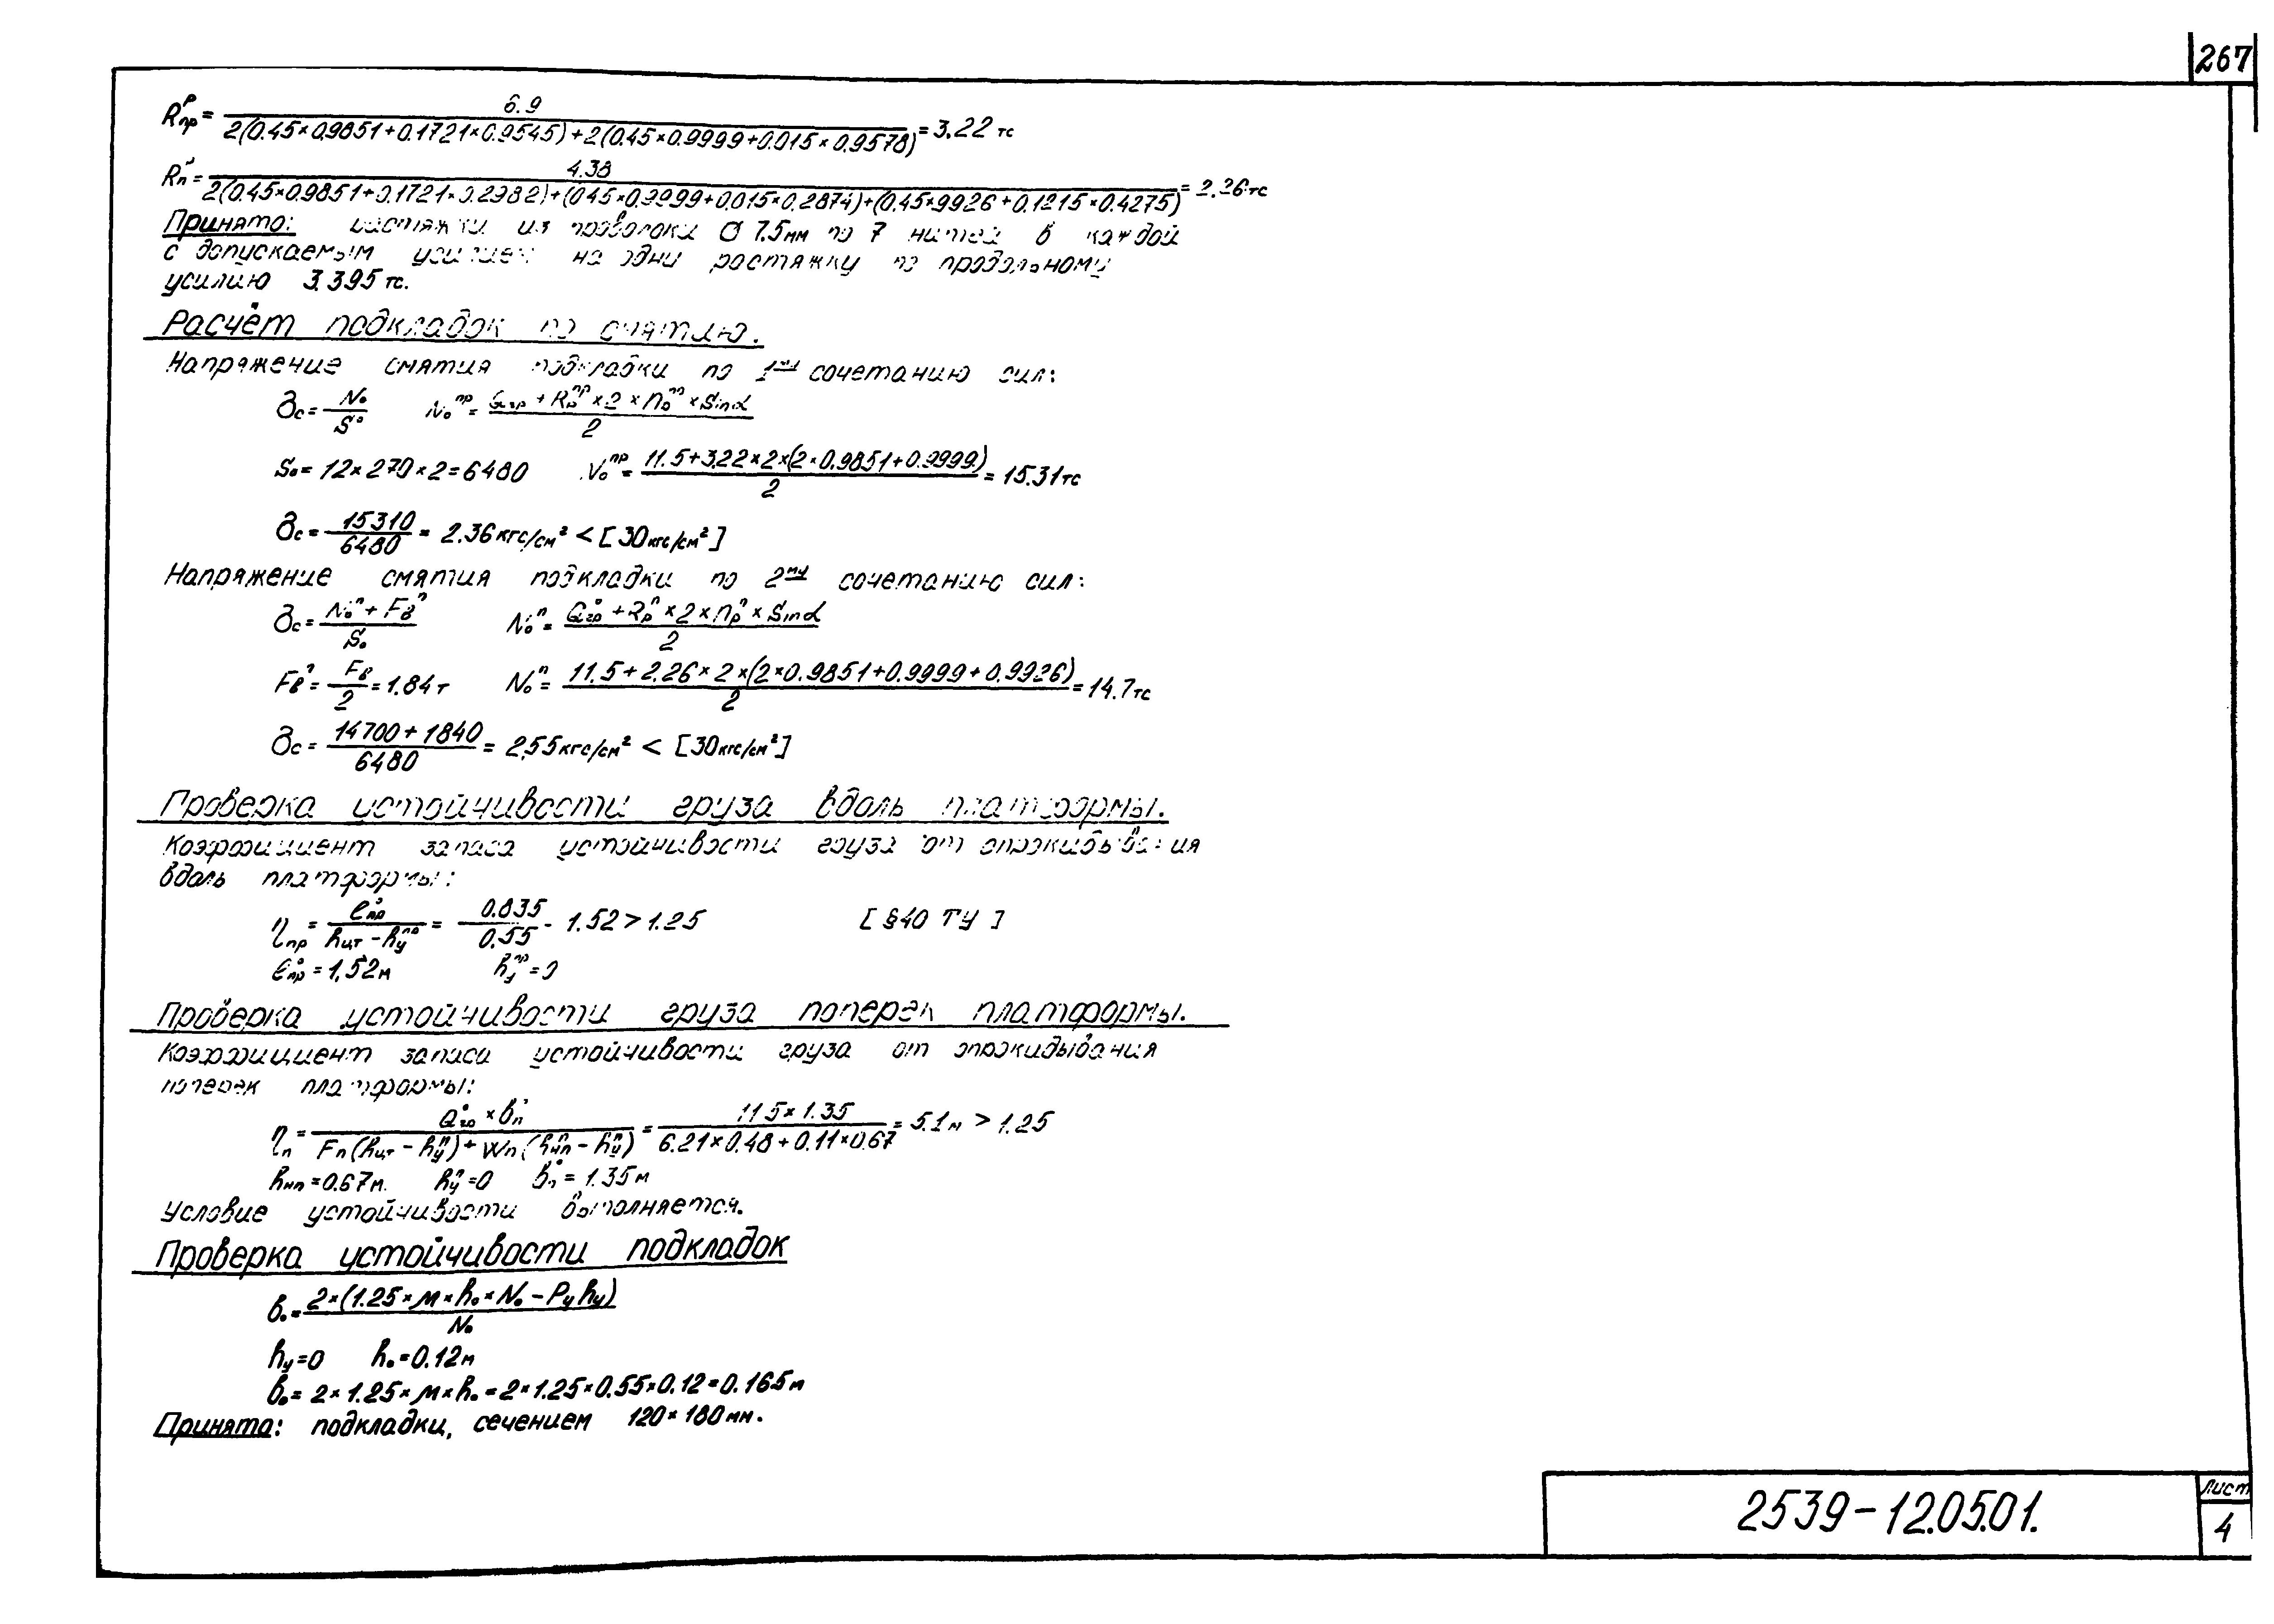 267
Rᵖпр = 6.9 / 2(0.45×0.9851+0.1721×0.9545)+2(0.45×0.9999+0.015×0.9578) = 3.22 тс
Rп = 4.38 / 2(0.45×0.9851+0.1721×0.2982)+(045×0.9999+0.015×0.2874)+(0.45×9926+0.1215×0.4275) = 2.26 тс
Принято: растяжки из проволоки Ø 7.5мм по 7 нитей в каждой
с допускаемым усилием на одни растяжку по продольному
усилию 3.395 тс.
Расчёт подкладок по смятию.
Напряжение смятия подкладки по 1му сочетанию сил:
σс = N₀ / S₀ N₀ᵖʳ = Qгр + Rрᵖʳ × 2 × nрᵖʳ × Sinα / 2
S₀ = 12×270×2=6480 N₀ᵖʳ = 11.5+3.22×2×(2×0.9851+0.9999) / 2 = 15.31тс
σс = 15310 / 6480 = 2.36 кгс/см² < [30кгс/см²]
Напряжение смятия подкладки по 2му сочетанию сил:
σс = N₀ⁿ + Fвⁿ / S₀ N₀ⁿ = Q°гр + Rрⁿ × 2 × nрⁿ × Sinα / 2
Fвⁿ = Fв / 2 = 1.84т N₀ⁿ = 11.5+2.26×2×(2×0.9851+0.9999+0.9926) / 2 = 14.7тс
σс = 14700+1840 / 6480 = 2,55кгс/см² < [30кгс/см²]
Проверка устойчивости груза вдоль платформы.
Коэффициент запаса устойчивости груза от опрокидывания
вдоль платформы:
ηпр = ℓ°пр / hцт - hуᵖʳ = 0.835 / 0.55 - 1.52 > 1.25 [§40 ТУ]
ℓ°пр = 1,52м hуᵖʳ = 0
Проверка устойчивости груза поперек платформы.
Коэффициент запаса устойчивости груза от опрокидывания
поперек платформы:
ηп = Q°гр × b°п / Fп(hцт - hуⁿ) + Wп(hⁿнп - hуⁿ) = 11.5×1.35 / 6.21×0.48+0.11×0.67 = 5.1м > 1.25
hнп = 0.67м. hуⁿ = 0 b°п = 1.35м
Условие устойчивости выполняется.
Проверка устойчивости подкладок
b₀ = 2×(1.25×м×h₀×N₀ - Pу hу) / N₀
hу=0 h₀=0.12м
b₀= 2×1.25×м×h₀=2×1.25×0.55×0.12=0.165м
Принято: подкладки, сечением 120×180мм.
2539-12.05.01.
Лист
4